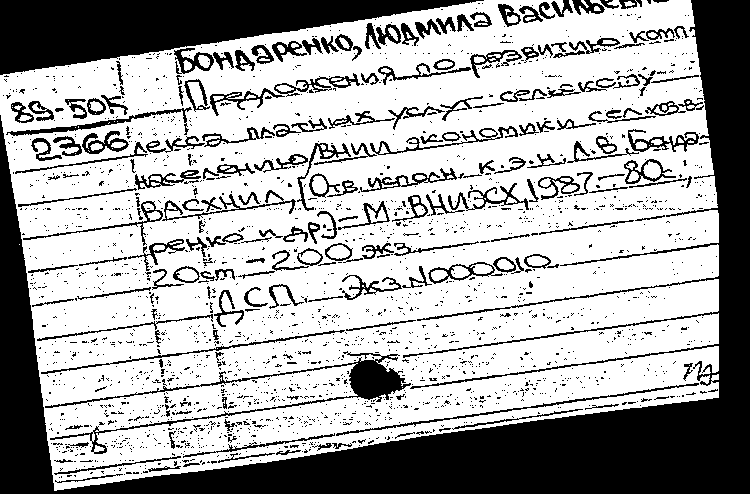 Бондаренко, Людмила Васильевна
89-505
2366
Предложения по развитию комп-
лекса платных услуг сельскому
населению/ВНИИ экономики сел.хоз-ва
ВАСХНИЛ; [Отв. исполн. к.э.н. Л.В. Бонда-
ренко и др.] – М.: ВНИЭСХ, 1987. – 80 с.;
20 см – 200 экз.
ДСП Экз. N000010
8